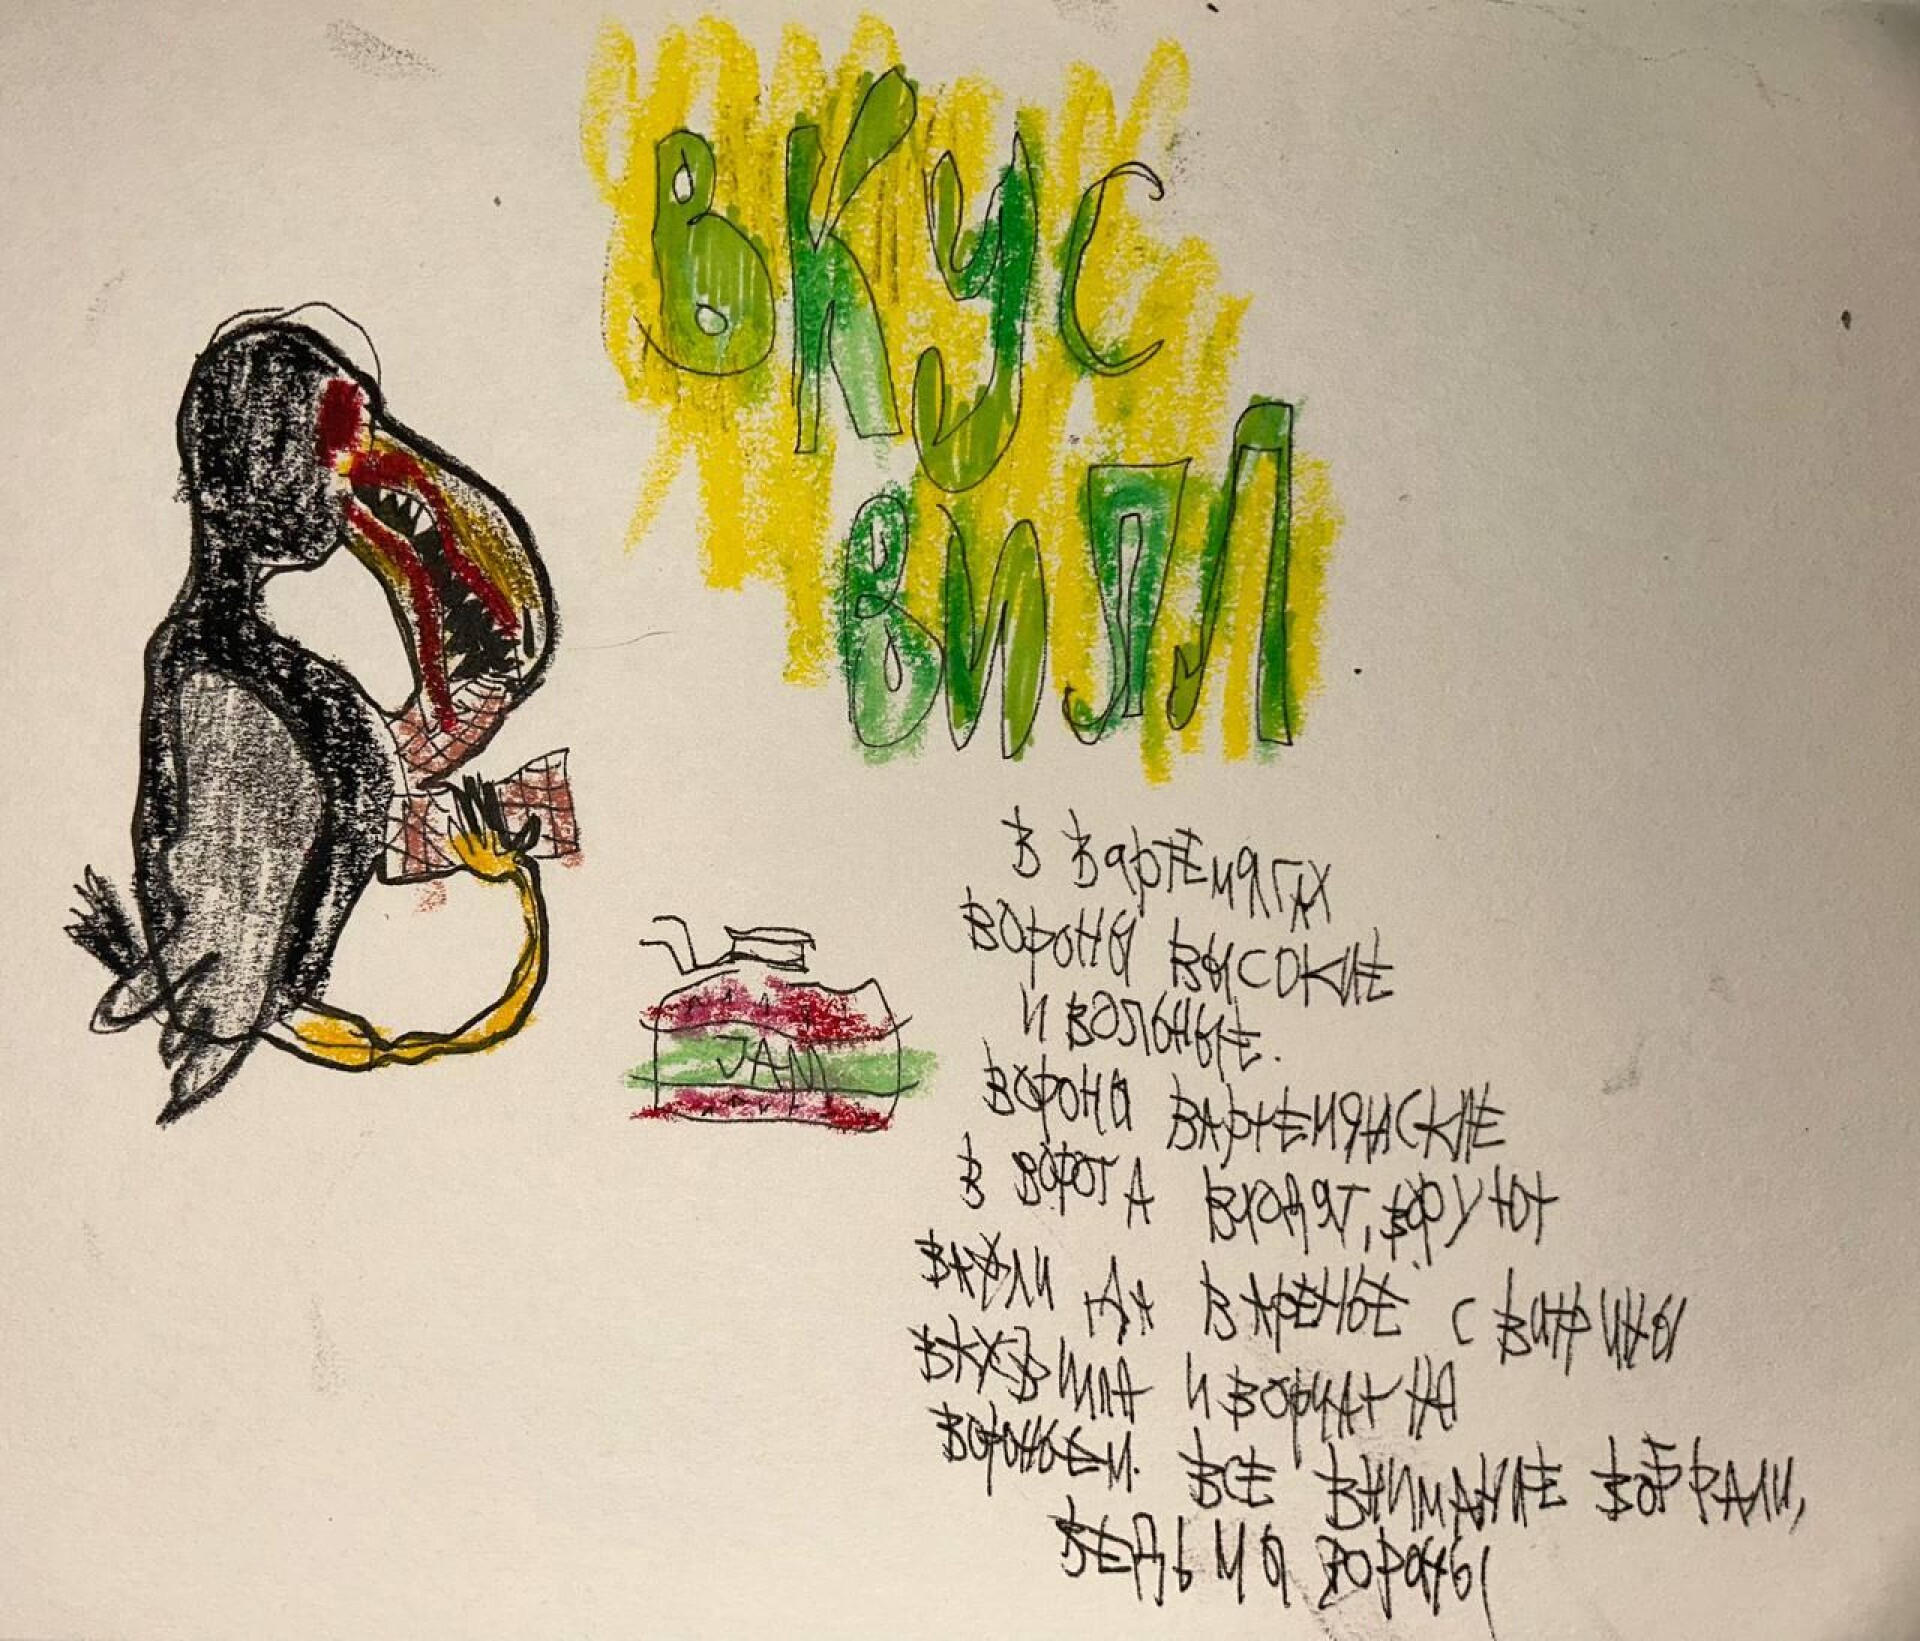 ВКУС
ВИЛЛ
JAM
В Вартемягах
вороны высокие
и вольные.
Вороны вартемянские
в ворота входят, воруют
вафли да варенье с витрины
вкхвилла и ворчат на
вороньем. Все внимание вобрали,
ведьмы вороны